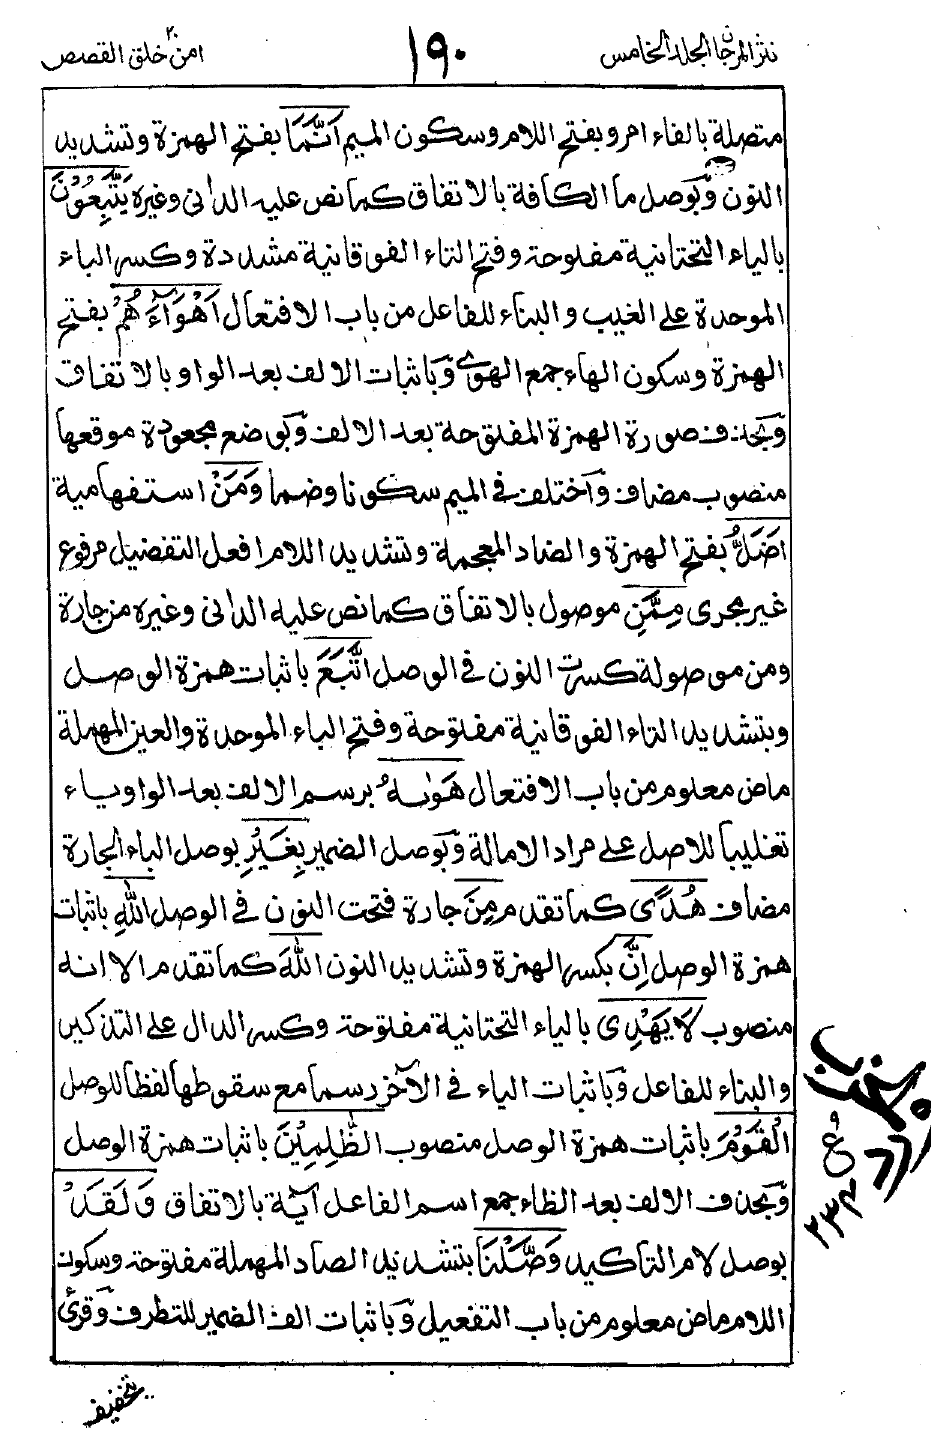 نثر المرجان الجلد الخامس
١٩٠
امن خلق ٢٠ القصص
متصلة بالفاء امر وبفتح اللام وسكون الميم اَنَّمَا بفتح الهمزة وتشديد
النون وَبوصل ما الكافة بالاتفاق كما نص عليه الدانى وغيره يَتَّبِعُوْنَ
بالياء التحتانية مفتوحة وفتح التاء الفوقانية مشددة وكسر الباء
الموحدة على الغيب والبناء للفاعل من باب الافتعال اَهْوَآءَهُمْ بفتح
الهمزة وسكون الهاء جمع الهوى وَباثبات الالف بعد الواو بالاتفاق
وَبحذف صورة الهمزة المفتوحة بعد الالف وَبوضع مجعودة موقعها
منصوب مضاف وَاختلف فى الميم سكونا وضما وَمَنْ استفهامية
اَضَلُّ بفتح الهمزة والضاد المعجمة وتشديد اللام افعل التفضيل مرفوع
غير مجرى مِمَّنِ موصول بالاتفاق كما نص عليه الدانى وغيره من جارة
ومن موصولة كسرت النون فى الوصل اتَّبَعَ باثبات همزة الوصل
وبتشديد التاء الفوقانية مفتوحة وفتح الباء الموحدة والعين المهملة
ماض معلوم من باب الافتعال هَوٰىهُ برسم الالف بعد الواو ياء
تغليبا للاصل على مراد الامالة وَبوصل الضمير بِغَيْرِ بوصل الباء الجارة
مضاف هُدًى كما تقدم مِنَ جارة فتحت النون فى الوصل اللّٰهِ باثبات
همزة الوصل اِنَّ بكسر الهمزة وتشديد النون اللّٰهَ كما تقدم الا انه
منصوب لَا يَهْدِى بالياء التحتانية مفتوحة وكسر الدال على التذكير
والبناء للفاعل وَباثبات الياء فى الآخر رسما مع سقوطها لفظا للوصل
الْقَوْمَ باثبات همزة الوصل منصوب الظّٰلِمِيْنَ باثبات همزة الوصل
وَبحذف الالف بعد الظاء جمع اسم الفاعل اٰية بالاتفاق وَلَقَدْ
بوصل لام التاكيد وَصَّلْنَا بتشديد الصاد المهملة مفتوحة وسكون
اللام ماض معلوم من باب التفعيل وَباثبات الف الضمير للتطرف وَقرئ
بتخفيف